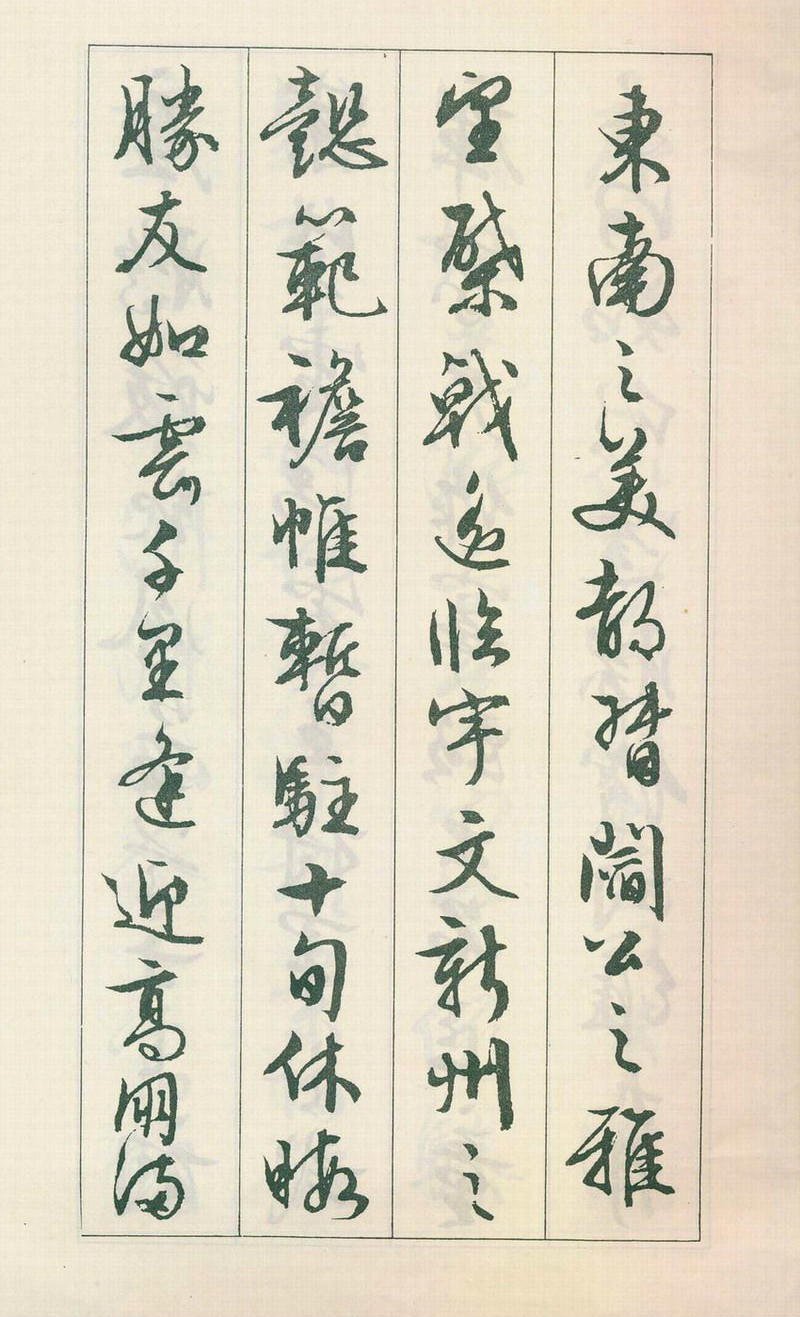 東南之美都督閻公之雅
望棨戟遥臨宇文新州之
懿範襜帷暫駐十旬休暇
勝友如雲千里逢迎高朋滿